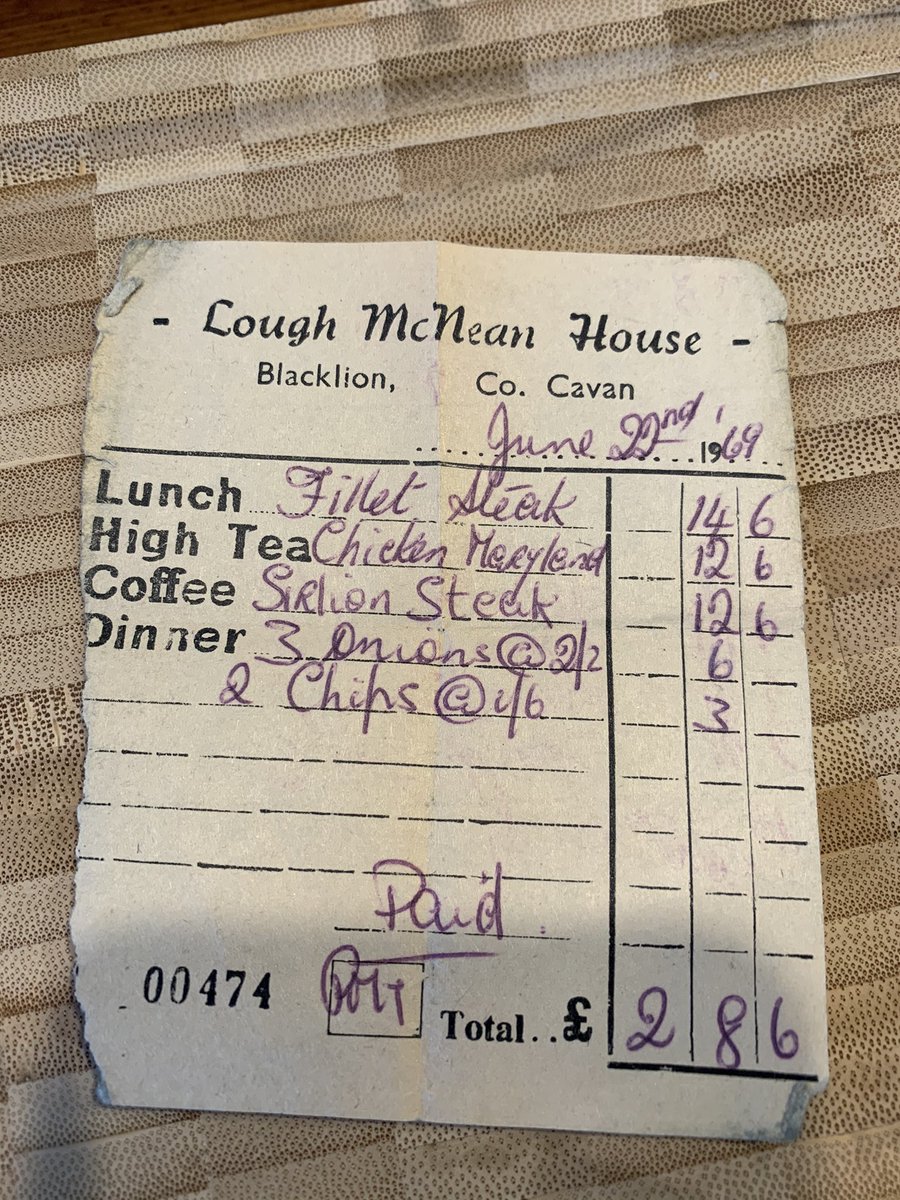 - Lough McNean House -
Blacklion, Co. Cavan
June 22nd, 1969
Lunch Fillet Steak 14 6
High Tea Chicken Maryland 12 6
Coffee Sirlion Steak 12 6
Dinner 3 Onions @ 2/2 6
2 Chips @ 1/6 3
Paid
00474 Total.. £ 2 8 6